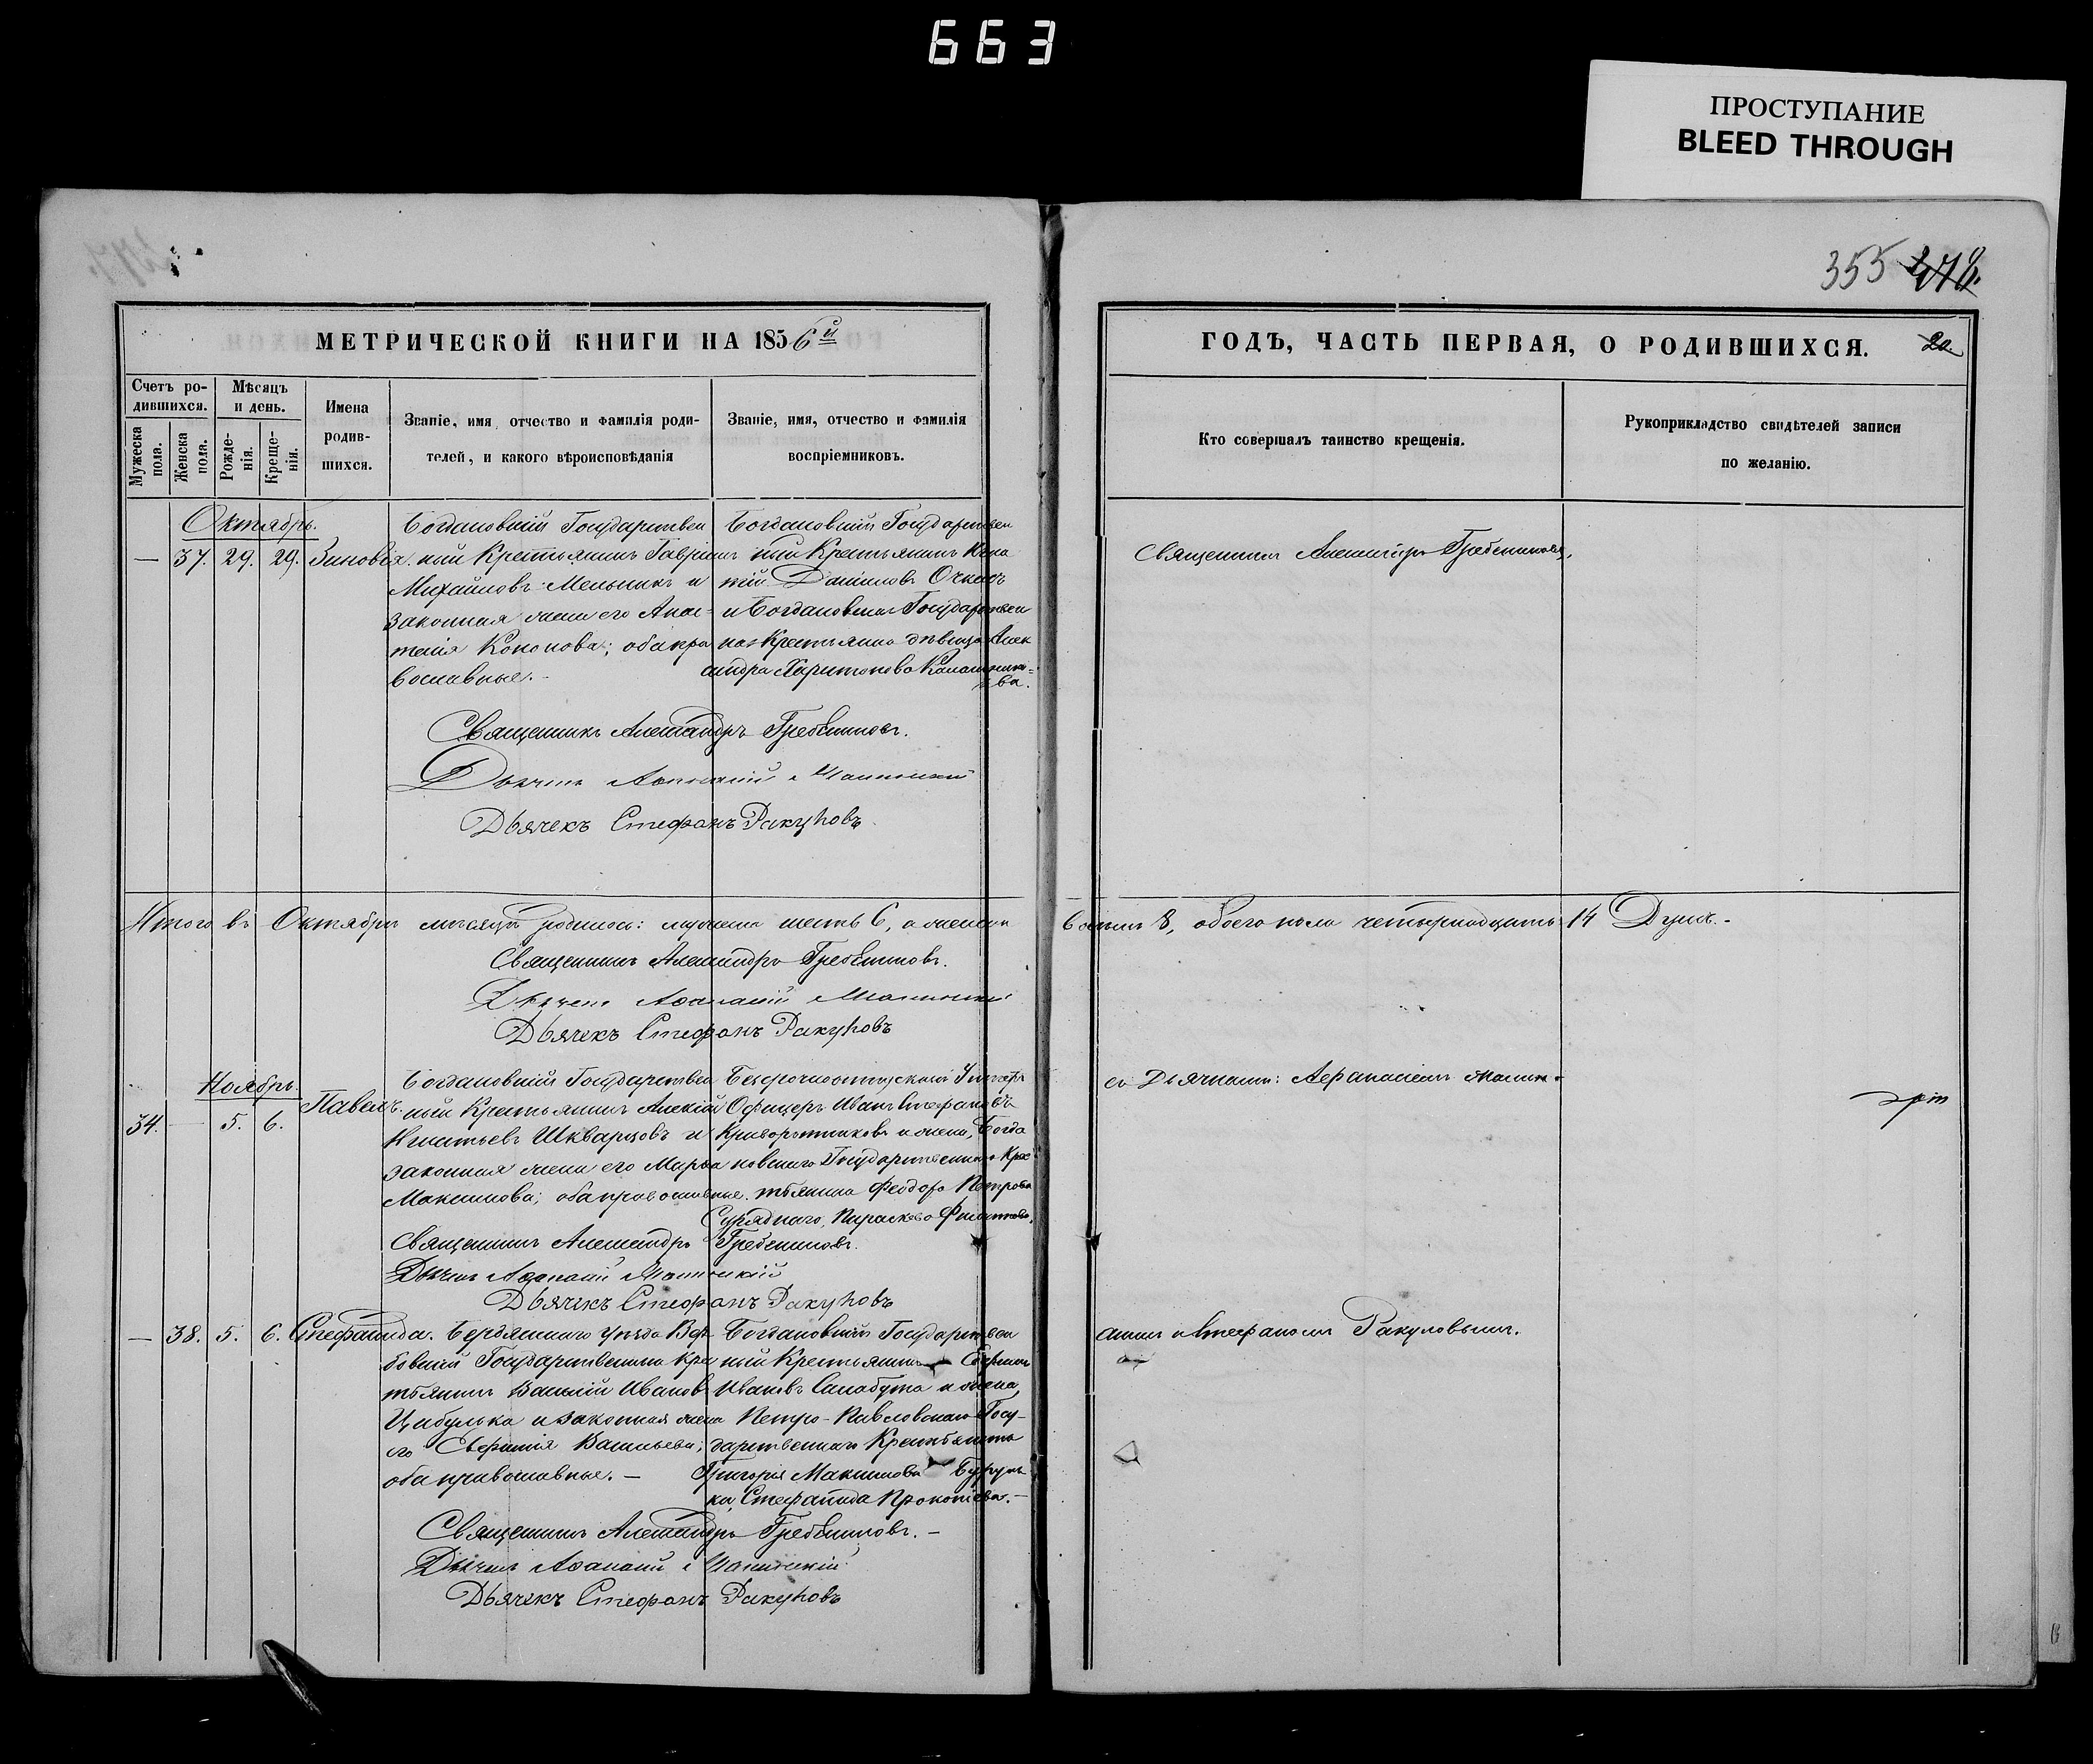 663
ПРОСТУПАНИЕ
BLEED THROUGH
355 278.
МЕТРИЧЕСКОЙ КНИГИ НА 1856й
Счетъ ро-
дившихся.
Мужеска пола.
Женска пола.
Мѣсяцъ
и день.
Рожде-
нія.
Креще-
нія.
Имена
родив-
шихся.
Званіе, имя отчество и фамилія роди-
телей, и какого вѣроисповѣданія
Званіе, имя, отчество и фамилія
воспріемниковъ.
ГОДЪ, ЧАСТЬ ПЕРВАЯ, О РОДИВШИХСЯ.
Кто совершалъ таинство крещенія.
Рукоприкладство свидѣтелей записи
по желанію.
Октябрь.
— 37. 29. 29. Зиновія.
Богдановскій Государствен
ный Крестьянинъ Гавріилъ
Михайловъ Мельникъ и
законная жена его Анас=
тасія Кононова; оба пра
вославные.
Богдановскій Государствен
ный Крестьянинъ
Даниловъ
и Богдановская Государствен
ная Крестьянка дѣвица Алек
сандра Харитонова Калашнико=
ва.
Священникъ Александръ Гребенниковъ.
Священникъ Александръ Гребенниковъ.
Дьячекъ Афанасій
Дьячекъ Стефанъ Ракуловъ
Итого въ Октябрѣ мѣсяцѣ родилось: мужеска шесть 6, а женска
восемь 8, обоего пола четырнадцать 14 Душъ.-
Священникъ Александръ Гребенниковъ.
Дьячекъ Афанасій
Дьячекъ Стефанъ Ракуловъ
Ноябрь.
34. — 5. 6. Павелъ.
Богдановскій Государствен
ный Крестьянинъ Алексій
Игнатьевъ Шкварцовъ и
законная жена его Марѳа
Максимова; оба православные.
Безсрочноотпускной Унтеръ
Офицеръ Иванъ Стефановъ
Криворотниковъ и жена, Богда
новскаго Государственнаго Крес
тьянина Феодора Петрова
Сурядного, Параскева Филиппова.
съ Дьячками: Афанасіемъ
Священникъ Александръ Гребенниковъ.
Дьячекъ Афанасій
Дьячекъ Стефанъ Ракуловъ
— 38. 5. 6. Стефанида.
Бердянскаго уѣзда Вер
бовскій Государственный Кре
стьянинъ Василій Ивановъ
Цибулька и законная жена
его Евфимія Васильева;
оба православные. —
Богдановскій Государствен
ный Крестьянинъ
Ивановъ и жена
Петро-Павловскаго Госу-
дарственнаго Крестьянина
Григорія Максимова
ка, Стефанида Прокопіева.—
и Стефаномъ Ракуловымъ.
Священникъ Александръ Гребенниковъ.—
Дьячекъ Афанасій
Дьячекъ Стефанъ Ракуловъ